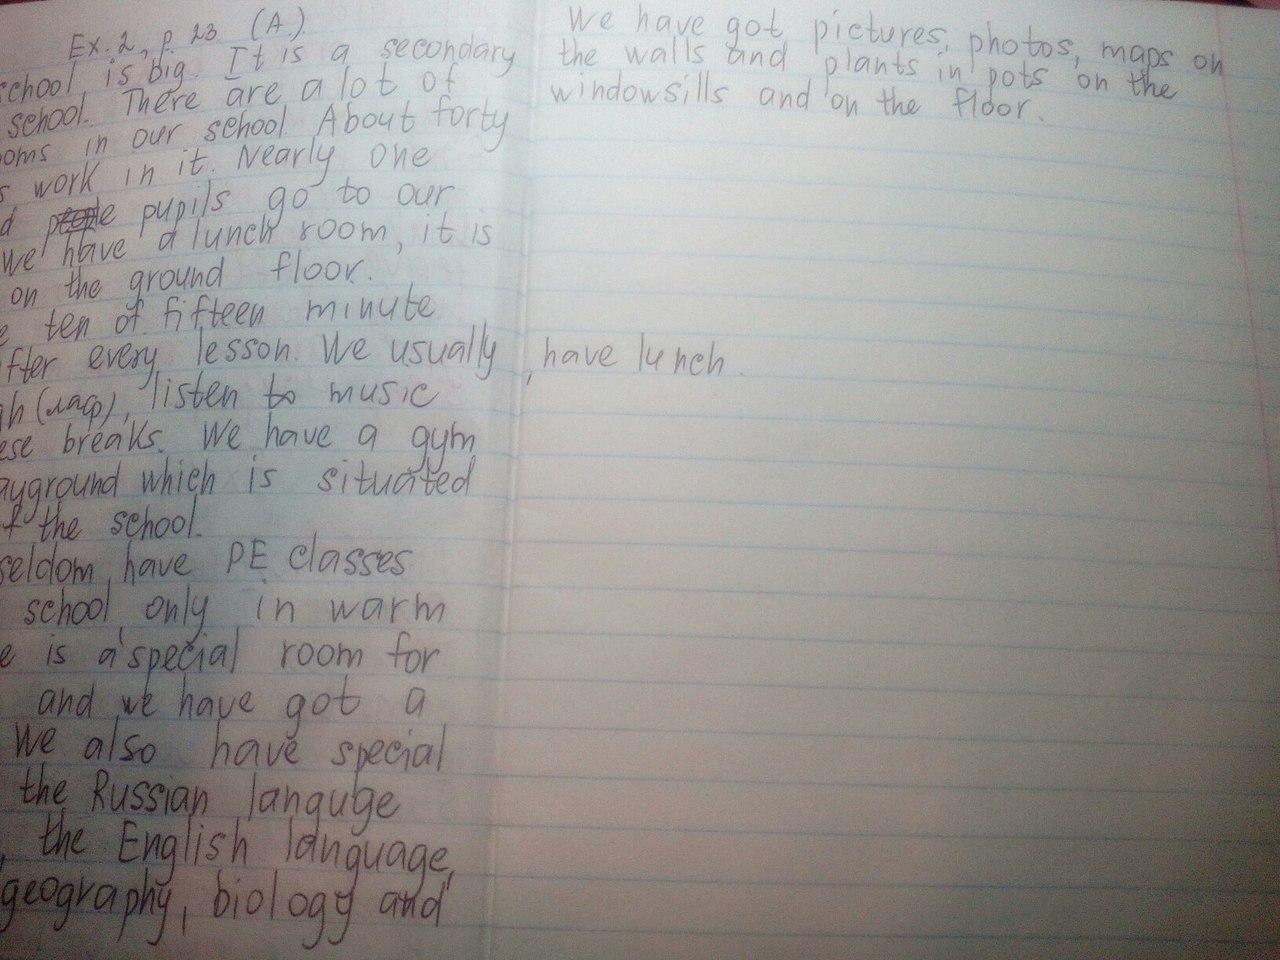 Ex. 2, p. 23. (A.)
school is big. It is a secondary
school. There are a lot of
ooms in our school About forty
s work in it. Nearly one
d pupils go to our
we have a lunch room, it is
on the ground floor.
e ten of fifteen minute
fter every lesson. We usually , have lunch.
gh (лаф), listen to music
ese breaks. We have a gym
ayground which is situated
f the school.
seldom have PE classes
school only in warm
e is a special room for
and we have got a
We also have special
the Russian languge
, the English language,
geography, biology and
We have got pictures, photos, maps on
the walls and plants in pots on the
windowsills and on the floor.